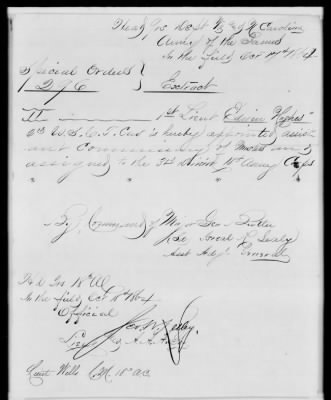 Head Qrs Dept Va & N Carolina
Army of the James
In the field Oct 17th 1864
Special Orders
296
Extract
II
1st Lieut Edwin Hughes
U.S.C.T. is hereby appointed assist
ant Commissary of Musters and
assigned to the 3rd Division 18th Army Corps
" " "
By Command of Major Gen Butler
Asst Adjt General
Hd Qrs 18th AC
In the field Oct 18th 1864
Official
A.A.A.G.
Lieut Wells 18" A.C.